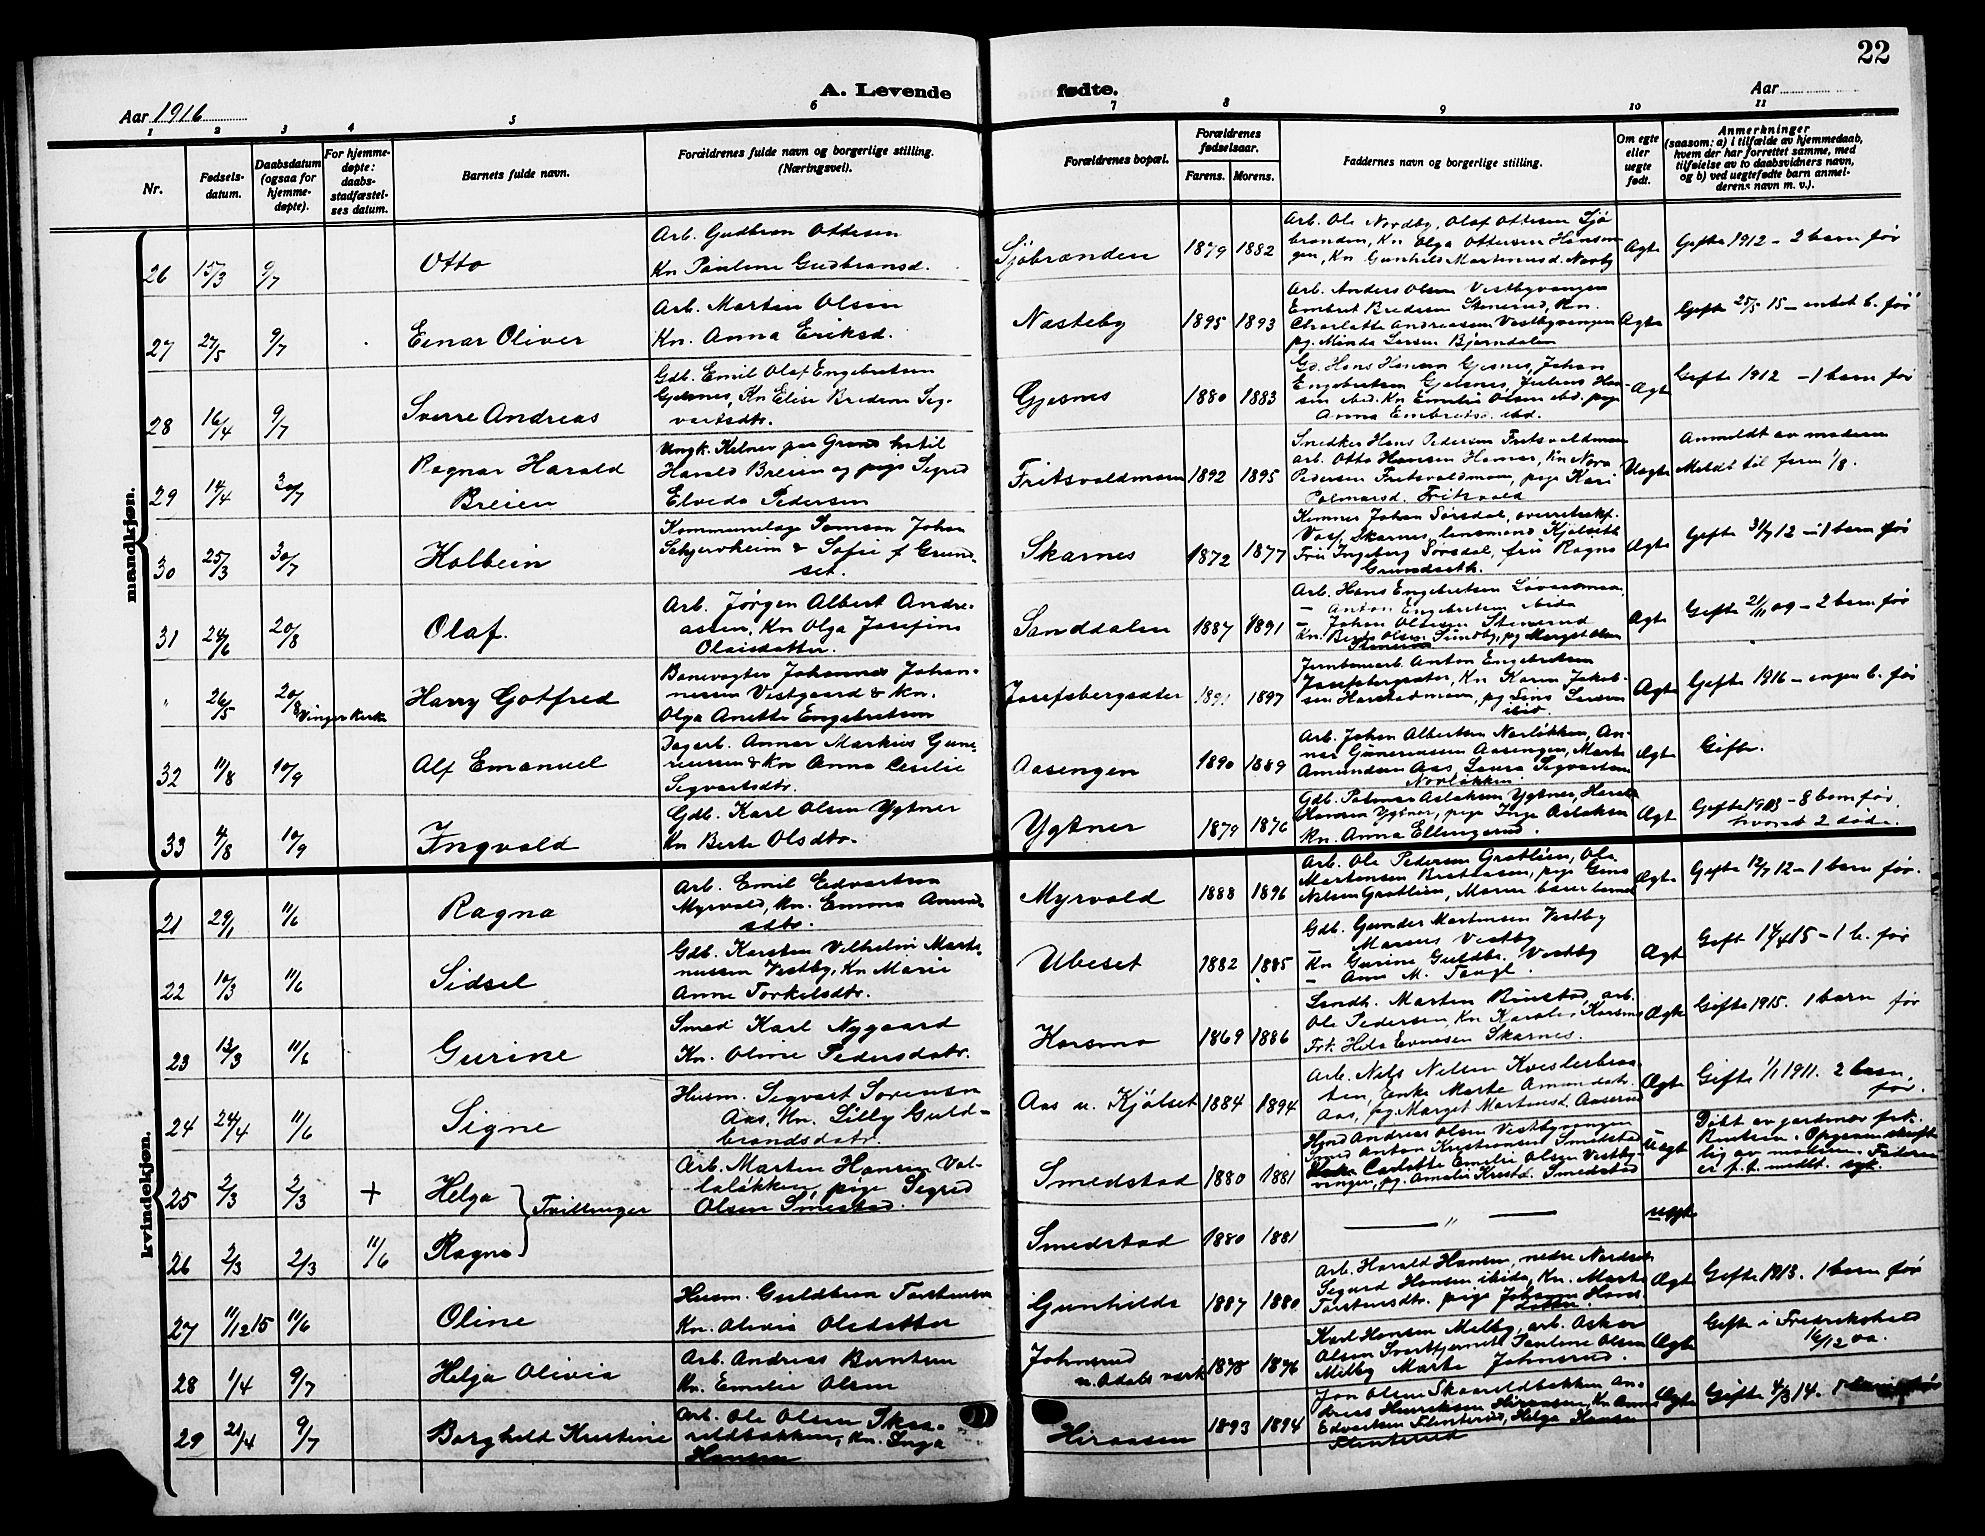 22
A. Levende fødte.
Aar 1916
Aar
1 2 3 4 5 6 7 8 9 10 11
Nr.
Fødsels-
datum.
Daabsdatum
(ogsaa for
hjemme-
døpte).
For hjemme-
døpte:
daabs-
stadfæstel-
ses datum.
Barnets fulde navn.
Forældrenes fulde navn og borgerlige stilling.
(Næringsvei).
Forældrenes bopæl.
Forældrenes
fødselsaar.
Farens. Morens.
Faddernes navn og borgerlige stilling.
Om egte
eller
uegte
født.
Anmerkninger
(saasom: a) i tilfælde av hjemmedaab,
hvem der har forrettet samme, med
tilføielse av to daabsvidners navn,
og b) ved uegtefødte barn anmel-
derens navn m. v.).
mandkjøn.
26 15/3 9/7 Otto
Arb. Gudbran Ottesen
Kn Pauline Gudbransd.
Sjøbranden 1879 1882
Arb. Ole Nordby, Olaf Ottesen Sjø
branden, Kn Olga Ottersen
Ægte
Gifte 1912 – 2 barn før
27 27/5 9/7 Einar Oliver
Arb. Martin Olsen
Kn. Anna Eriksd.
Næsteby 1895 1893
Arb. Anders Olsen Vestbyvangen
Embret Bredesen Stenerud, Kn.
Charlotte Andreassen Vestbyvangen
pg. Minda Larsen Bjørndalen
Ægte
Gifte 25/5 15 – intet b. før
28 16/4 9/7 Sverre Andreas
Gdb. Emil Olaf Engebretsen
Gjesnes, Kn Elise Bredesen Sig-
vartsdtr.
Gjesnes 1880 1883
Gd. Hans Hansen Gjesnes, Johan
Engebretsen Gjesnes, Julius Han-
sen ibid. Kn Emilie Olsen ibd. pige
Anna Embrets. ibd.
Ægte
Gifte 1912 – 1 barn før
29 14/4 30/7 Ragnar Harald
Breien
Ungk. Kelner paa Grand hotel
Harald Breien og pige Sigrid
Elveda Pedersen
Fritsvoldmoen 1892 1895
Snedker Hans Pedersen Fritsvoldmoen
arb. Otto Hansen Hamar, Kn Nora
Pedersen Fritsvoldmoen, pige Kari
Palmarsd. Fritsvold
Uægte
Anmeldt av moderen
Meldt til fam 1/8.
30 25/3 30/7 Kolbein
Kommunelæge Samson Johan
Schjervheim & Sofie f Grund-
set.
Skarnes 1872 1877
Kemner Johan Sørsdal, overretssakf.
Skarnes, lensmand Kjølseth
Fru Ingeborg Sørsdal, fru Ragna
Grundseth.
Ægte
Gifte 31/7 12 – 1 barn før
31 24/6 20/8 Olaf.
Arb. Jørgen Albert Andre-
assen, Kn Olga Josefine
Olaisdatter.
Sanddalen 1887 1891
Arb. Hans Engebretsen
– Anton Engebretsen ibida
– Johan Ottesen Stenerud
Kn. Berte Olsen Sundby, pg Margit Olsen
Stenerud
Ægte
Gifte 21/11 09 – 2 barn før
" 26/5 20/8 Vinger Kirke Harry Gotfred
Banevogter Johannes Johan-
nessen Vestgaard & Kn.
Olga Anette Engebretsen
Josefsbergsæter 1891 1897
Jernbanearb. Anton Engebretsen
Josefsbergsæter, Kn Karen Jakob-
sen Harstadmoen, pg Lina Larsen
ibid.
Ægte
Gifte 1916 – ingen b. før
32 11/8 10/9 Alf Emanuel
Dagarb. Annar Markius Gune-
riussen & Kn Anna Cecilie
Segvartsdtr.
Aasengen 1890 1889
Arb. Johan Albertsen Norløkken, An-
nar Guneriussen Aasengen, Marte
Amundsen Aas, Laura Segvartsen
Norløkken.
Ægte
Gifte.
33 4/8 10/9 Ingvald
Gdb. Karl Olsen Ygtner
Kn Berte Olsdtr.
Ygtner 1879 1876
Gdb. Palmar Aslaksen Ygtner, Harald
Hansen Ygtner, pige Inga Aslaksen
Kn. Anna Ellingerud.
Ægte
Gifte 1903 – 8 barn før.
hvorav 2 døde.
kvindekjøn.
21 29/1 11/6 Ragna
Arb. Emil Edvartsen
Myrvold, Kn. Emma Amund
sdtr.
Myrvold 1888 1896
Arb. Ole Pedersen Grøtlien, Ole
Martensen pige Gina
Nilsen Grøtlien, Maren
Ægte
Gifte 12/7 12 – 1 barn før.
22 10/3 11/6 Sidsel
Gdb. Karsten Vilhelm Marte-
nussen Vestby, Kn Marie
Anne Torkelsdtr.
Ubeset 1882 1885
Gdb. Gunder Martinsen Vestby
– Marius Vestby
– Kn Gurine Guldbr. Vestby
– Ann M. Taugl.
Ægt
Gift 17/4 15 – 1 b. før
23 12/3 11/6 Gurine
Smed Karl Nygaard
Kn. Oline Pedersdatr.
Korsmo 1869 1886
Landh. Marten Bustad, arb.
Ole Pedersen, Kn Karoline Korsmo
Frk. Hela Evensen Skarnes.
Ægte
Gifte 1915. 1 barn før
24 24/4 11/6 Signe
Husm. Segvart Sørensen
Aas, Kn. Lilly Guld-
brandsdatr.
Aas u. Kjølset 1884 1894
Arb. Nils Nilsen Kveslerbraa-
ten, Enke Marte Amundsdt.
Aas, pg. Margit Martinsd. Aaserud
Ægte
Gifte 1/1 1911. 2 barn
før.
25 2/3 2/3 + Helga } Tvillinger
Arb. Marten Hansen Vol-
laløkken, pige Segred
Olsen Smestad.
Smedstad 1880 1881
Husmd Andreas Olsen Vestbyvangen
Smed Anton Kristiansen Smedstad
Carlotte Emilie Olsen Vestby-
vangen, pg. Amalie Krist. Smedstad
Uægt
Døbt av jordmor frk.
Knutsen. Opgaven skrift-
lig av moderen. Faderen
er f. t. medlt. sgk.
26 2/3 2/3 11/6 Ragna
Smedstad 1880 1881
— " —
uegte
27 11/12 15 11/6 Oline
Husm. Guldbran Torstensen
Kn. Olivia Olsdatter
Gunhilds 1887 1880
Arb. Harald Hansen, nedre Nordset
Segurd Hansen ibida, Kn. Marte
Torstensdtr. pige Johanne Hans
datter.
Ægte
Gifte 1913. 1 barn før
28 1/4 9/7 Helga Olivia
Arb. Andreas Berntsen
Kn. Emilie Olsen
Johnsrud
u. Odals verk 1878 1876
Karl Hansen Melby, arb. Oskar
Olsen Svartjernet Pauline Olsen
Melby Marte Johnsrud.
Ægte
Gifte i Fredrikshald
16/12 00.
29 21/4 9/7 Borghild Kristine
Arb. Ole Olsen Skaa-
reldbakken, Kn. Inga
Hansen
Hiraasen 1893 1894
Jon Olsen Skaareldbakken An-
dreas Henriksen Hiraasen, Kn Anna
Edvartsen Flenterud, Helga Hansen
Flenterud
Ægte
Gifte 4/3 14.